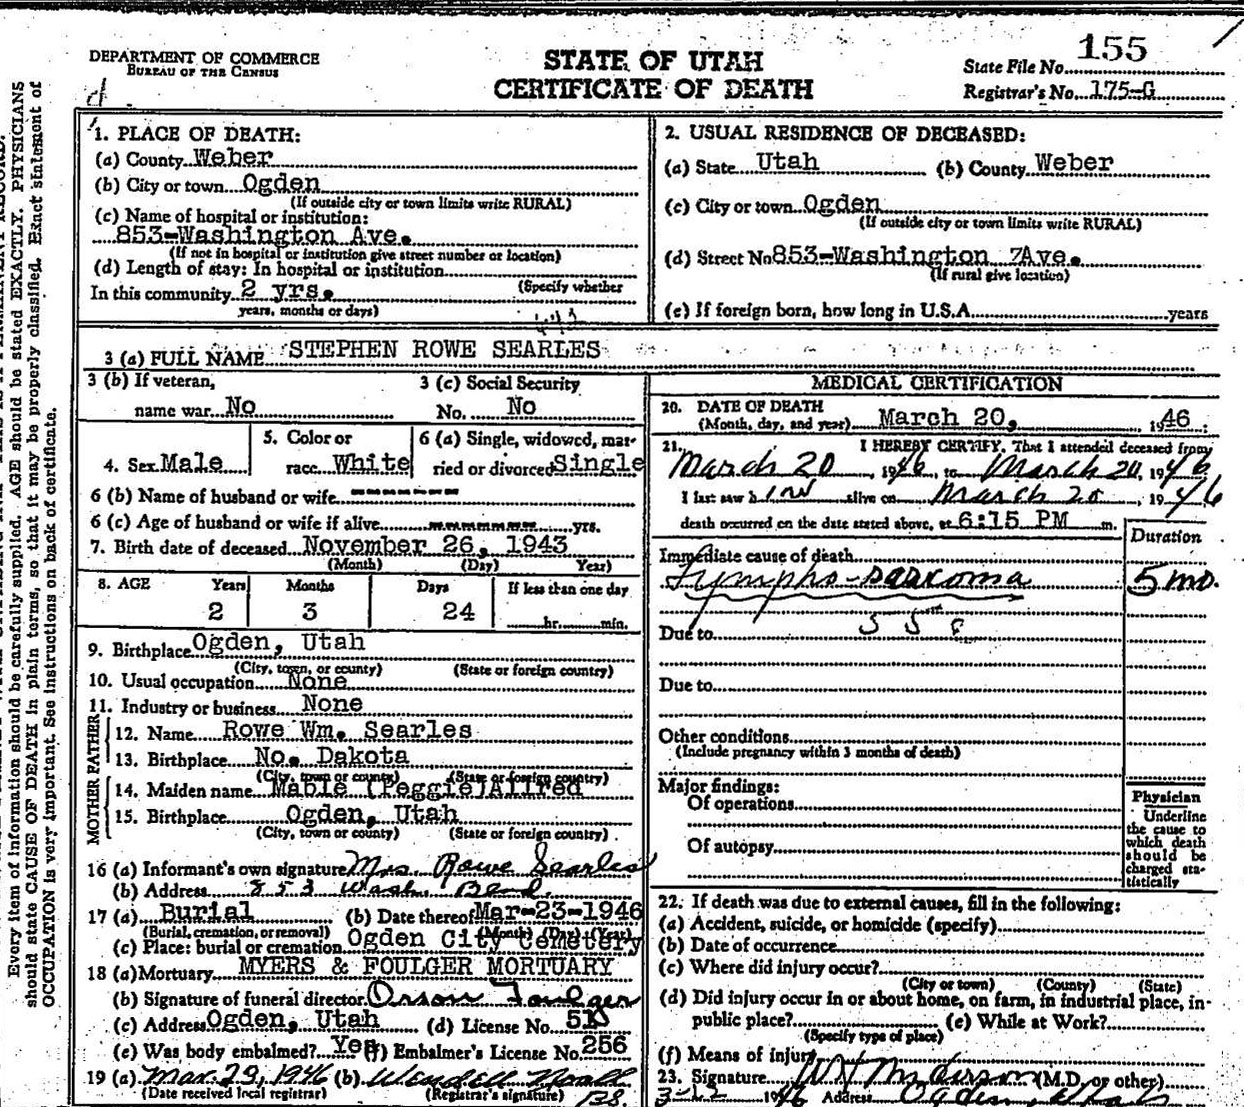 DEPARTMENT OF COMMERCE
BUREAU OF THE CENSUS
STATE OF UTAH
CERTIFICATE OF DEATH
State File No. 155
Registrar's No. 175-G
1. PLACE OF DEATH:
(a) County Weber
(b) City or town Ogden
(If outside city or town limits write RURAL)
(c) Name of hospital or institution:
853-Washington Ave.
(If not in hospital or institution give street number or location)
(d) Length of stay: In hospital or institution
(Specify whether
In this community 2 yrs.
years, months or days)
2. USUAL RESIDENCE OF DECEASED:
(a) State Utah (b) County Weber
(c) City or town Ogden
(If outside city or town limits write RURAL)
(d) Street No 853-Washington Ave.
(If rural give location)
(e) If foreign born, how long in U.S.A. years
3 (a) FULL NAME STEPHEN ROWE SEARLES
3 (b) If veteran,
name war No
3 (c) Social Security
No. No
4. Sex Male
5. Color or
race White
6 (a) Single, widowed, mar-
ried or divorced Single
6 (b) Name of husband or wife -------
6 (c) Age of husband or wife if alive ------- yrs.
7. Birth date of deceased November 26, 1943
(Month) (Day) Year)
8. AGE Years Months Days If less than one day
2 3 24 hr. min.
9. Birthplace Ogden, Utah
(City, town, or county) (State or foreign country)
10. Usual occupation None
11. Industry or business None
FATHER
12. Name Rowe Wm. Searles
13. Birthplace No. Dakota
(City, town or county) (State or foreign country)
MOTHER
14. Maiden name Mable (Peggie) Allred
15. Birthplace Ogden, Utah
(City, town or county) (State or foreign country)
16 (a) Informant's own signature Mrs. Rowe Searles
(b) Address 853 Wash.
17 (a) Burial (b) Date thereof Mar-23-1946
(Burial, cremation, or removal) (Month) (Day) (Year)
(c) Place: burial or cremation Ogden City Cemetery
18 (a) Mortuary MYERS & FOULGER MORTUARY
(b) Signature of funeral director Orson Foulger
(c) Address Ogden, Utah (d) License No.
(e) Was body embalmed? Yes (f) Embalmer's License No. 256
19 (a) Mar. 29, 1946 (b) Wendell
(Date received local registrar) (Registrar's signature)
MEDICAL CERTIFICATION
20. DATE OF DEATH
(Month, day, and year) March 20, 1946
21. I HEREBY CERTIFY, That I attended deceased from
March 20, 1946, to March 20, 1946
I last saw him alive on March 20 1946
death occurred on the date stated above, at 6:15 PM m.
Duration
Immediate cause of death
Lympho-sarcoma 5 mo.
Due to
Due to
Other conditions
(Include pregnancy within 3 months of death)
Major findings:
Of operations
Of autopsy
Physician
Underline
the cause to
which death
should be
charged sta-
tistically
22. If death was due to external causes, fill in the following:
(a) Accident, suicide, or homicide (specify)
(b) Date of occurrence
(c) Where did injury occur?
(City or town) (County) (State)
(d) Did injury occur in or about home, on farm, in industrial place, in
public place? (e) While at Work?
(Specify type of place)
(f) Means of injury
23. Signature (M.D. or other)
1946 Address Ogden, Utah
Every item of information should be carefully supplied. AGE should be stated EXACTLY. PHYSICIANS
should state CAUSE OF DEATH in plain terms, so that it may be properly classified. Exact statement of
OCCUPATION is very important. See instructions on back of certificate.